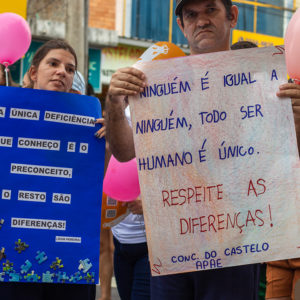 A ÚNICA DEFICIÊNCIA
QUE CONHEÇO É O
PRECONCEITO,
O RESTO SÃO
DIFERENÇAS!
NINGUÉM É IGUAL A
NINGUÉM, TODO SER
HUMANO É ÚNICO.
RESPEITE AS
DIFERENÇAS!
CONC. DO CASTELO
APAE